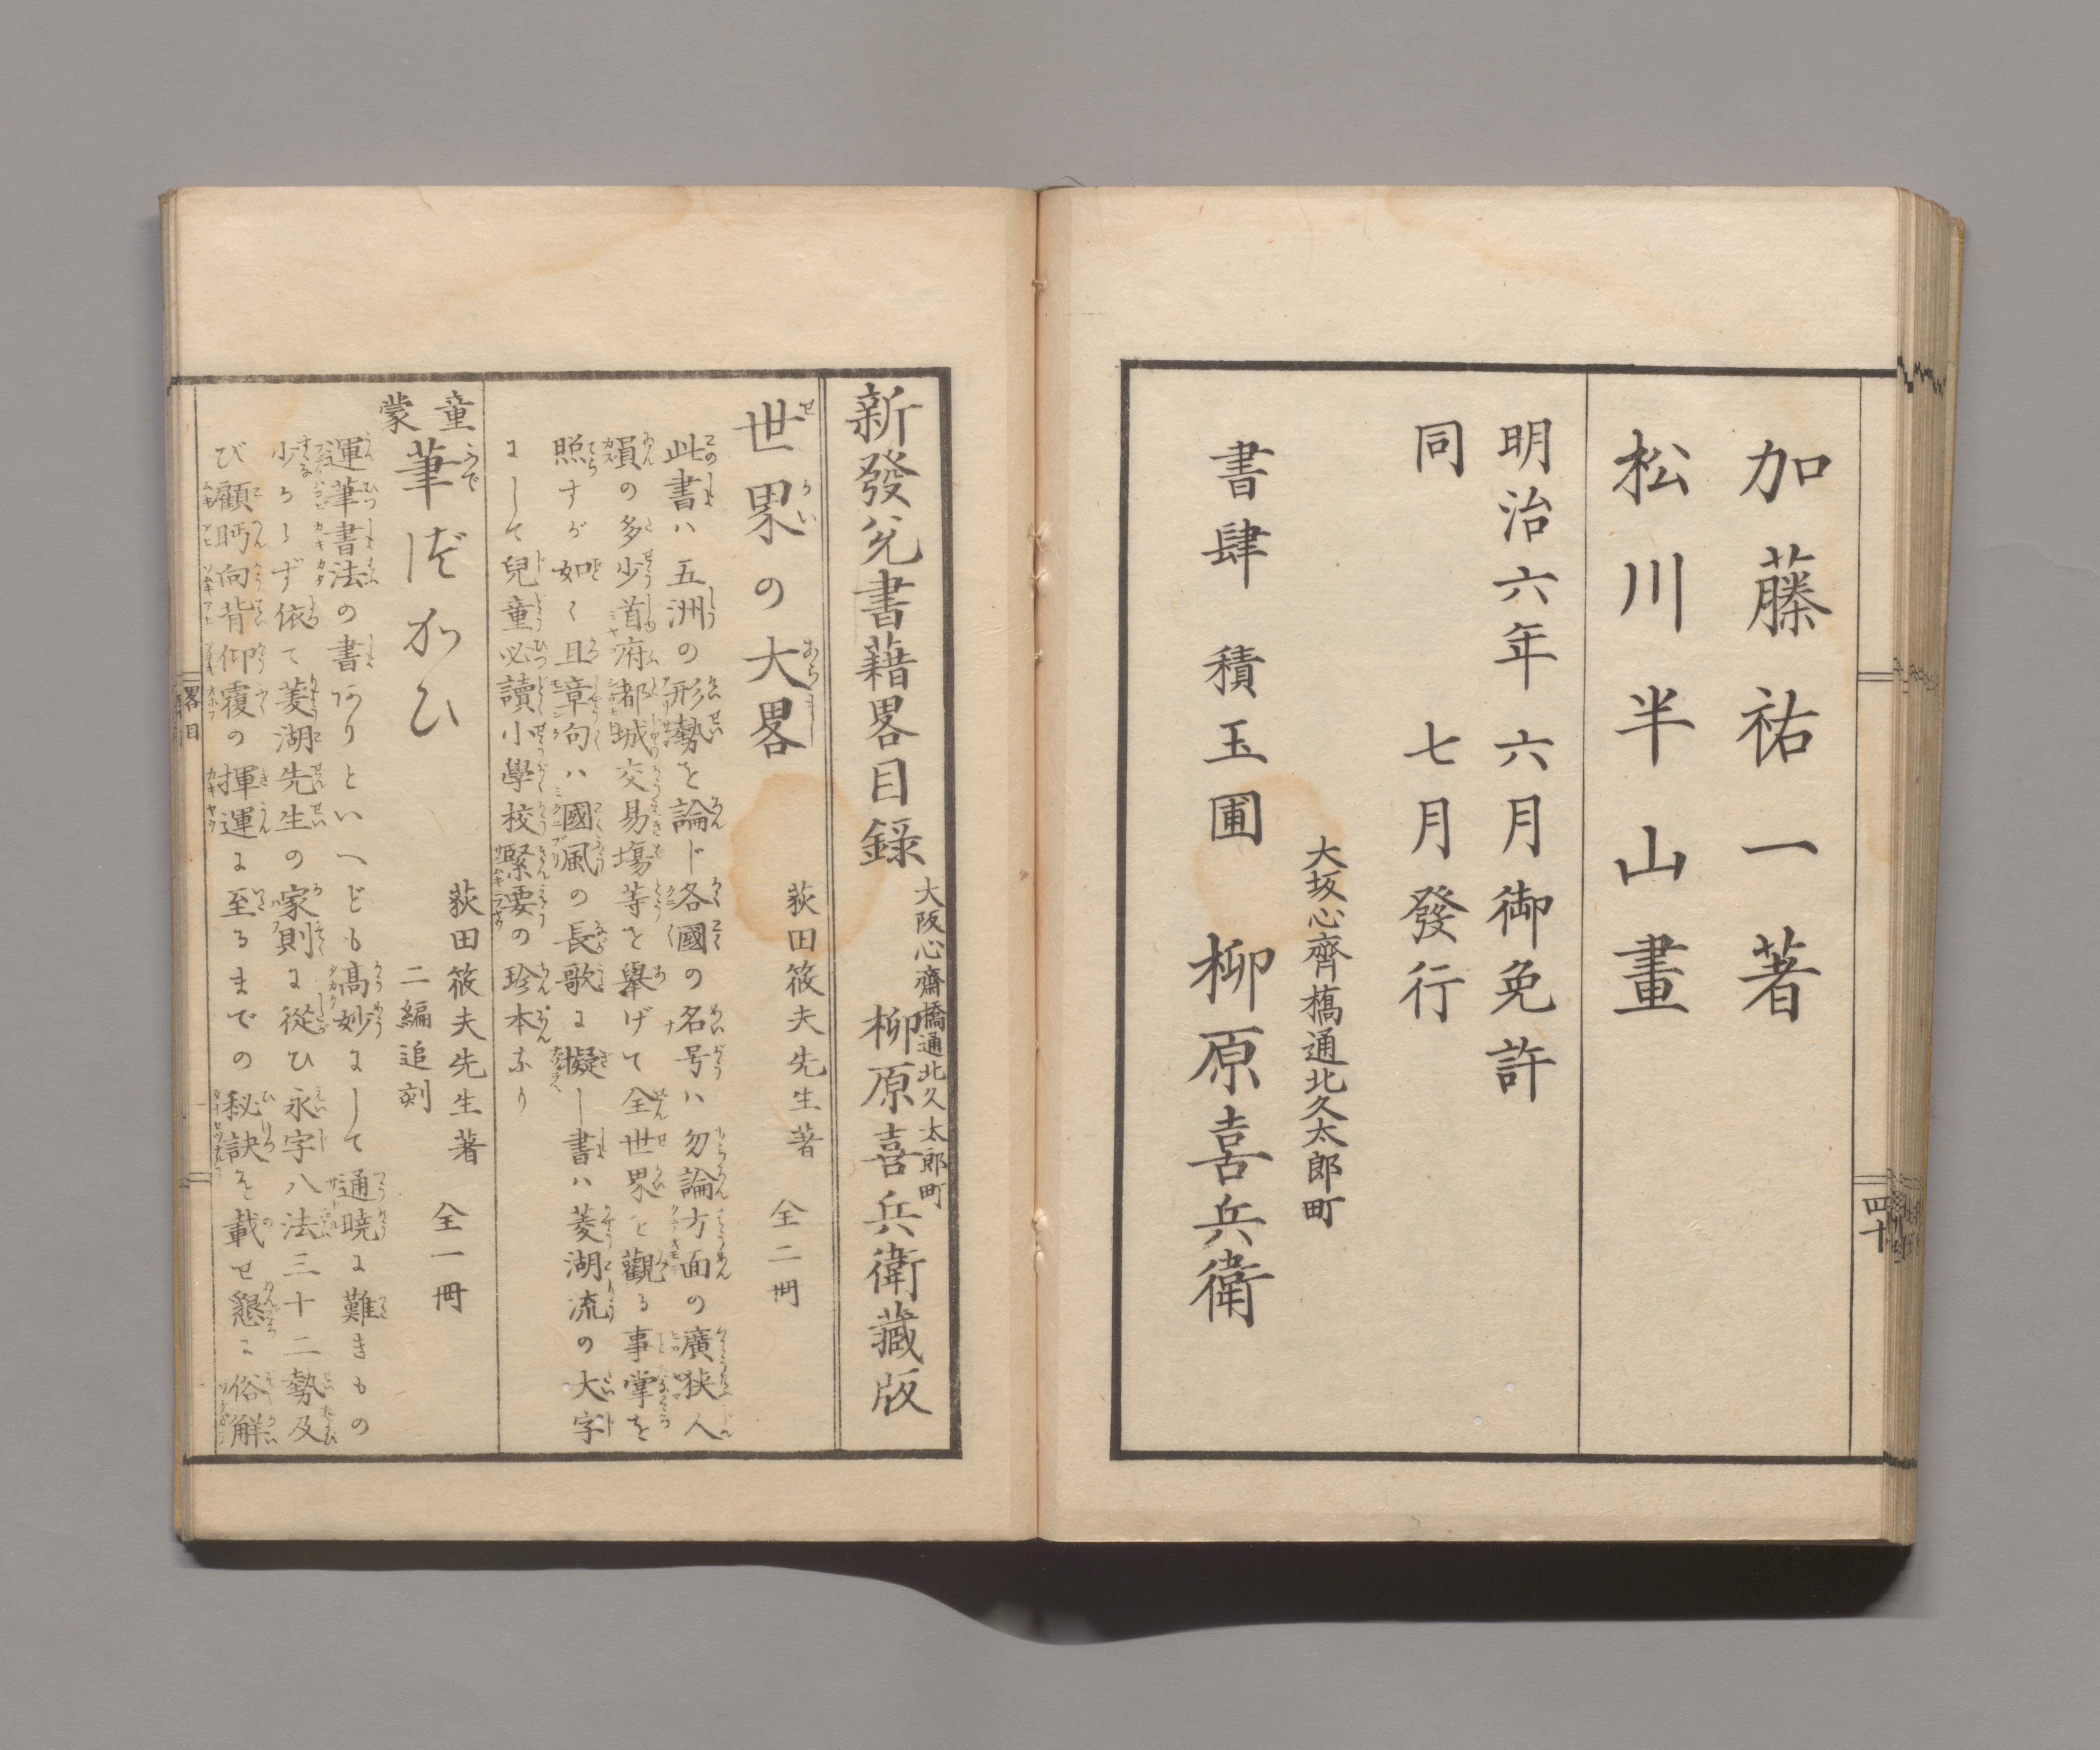 加藤祐一著
松川半山畫
明治六年六月御免許
同　七月發行
大坂心齊橋通北久太郎町
書肆　積玉圃　柳原喜兵衛
四十
新發兌書藉畧目録
大阪心齋橋通北久太郎町
柳原喜兵衛藏版
世界の大畧　荻田筱夫先生著　全二冊
此書ハ五洲の形勢を論じ各國の名号ハ勿論方面の廣狭人
員の多少首府都城交易塲等を舉げて全世界を觀る事掌を
照すが如く且章句ハ國風の長歌に擬し書ハ菱湖流の大字
にして兒童必讀小學校緊要の珍本なり
童蒙筆づかひ　荻田筱夫先生著　全一冊
二編追刻
運筆書法の書ありといへども高妙にして通暁に難きもの
少からず依て菱湖先生の家則に從ひ永字八法三十二勢及
び顧眄向背仰覆の揮運に至るまでの秘訣を載せ懇に俗解
畧目